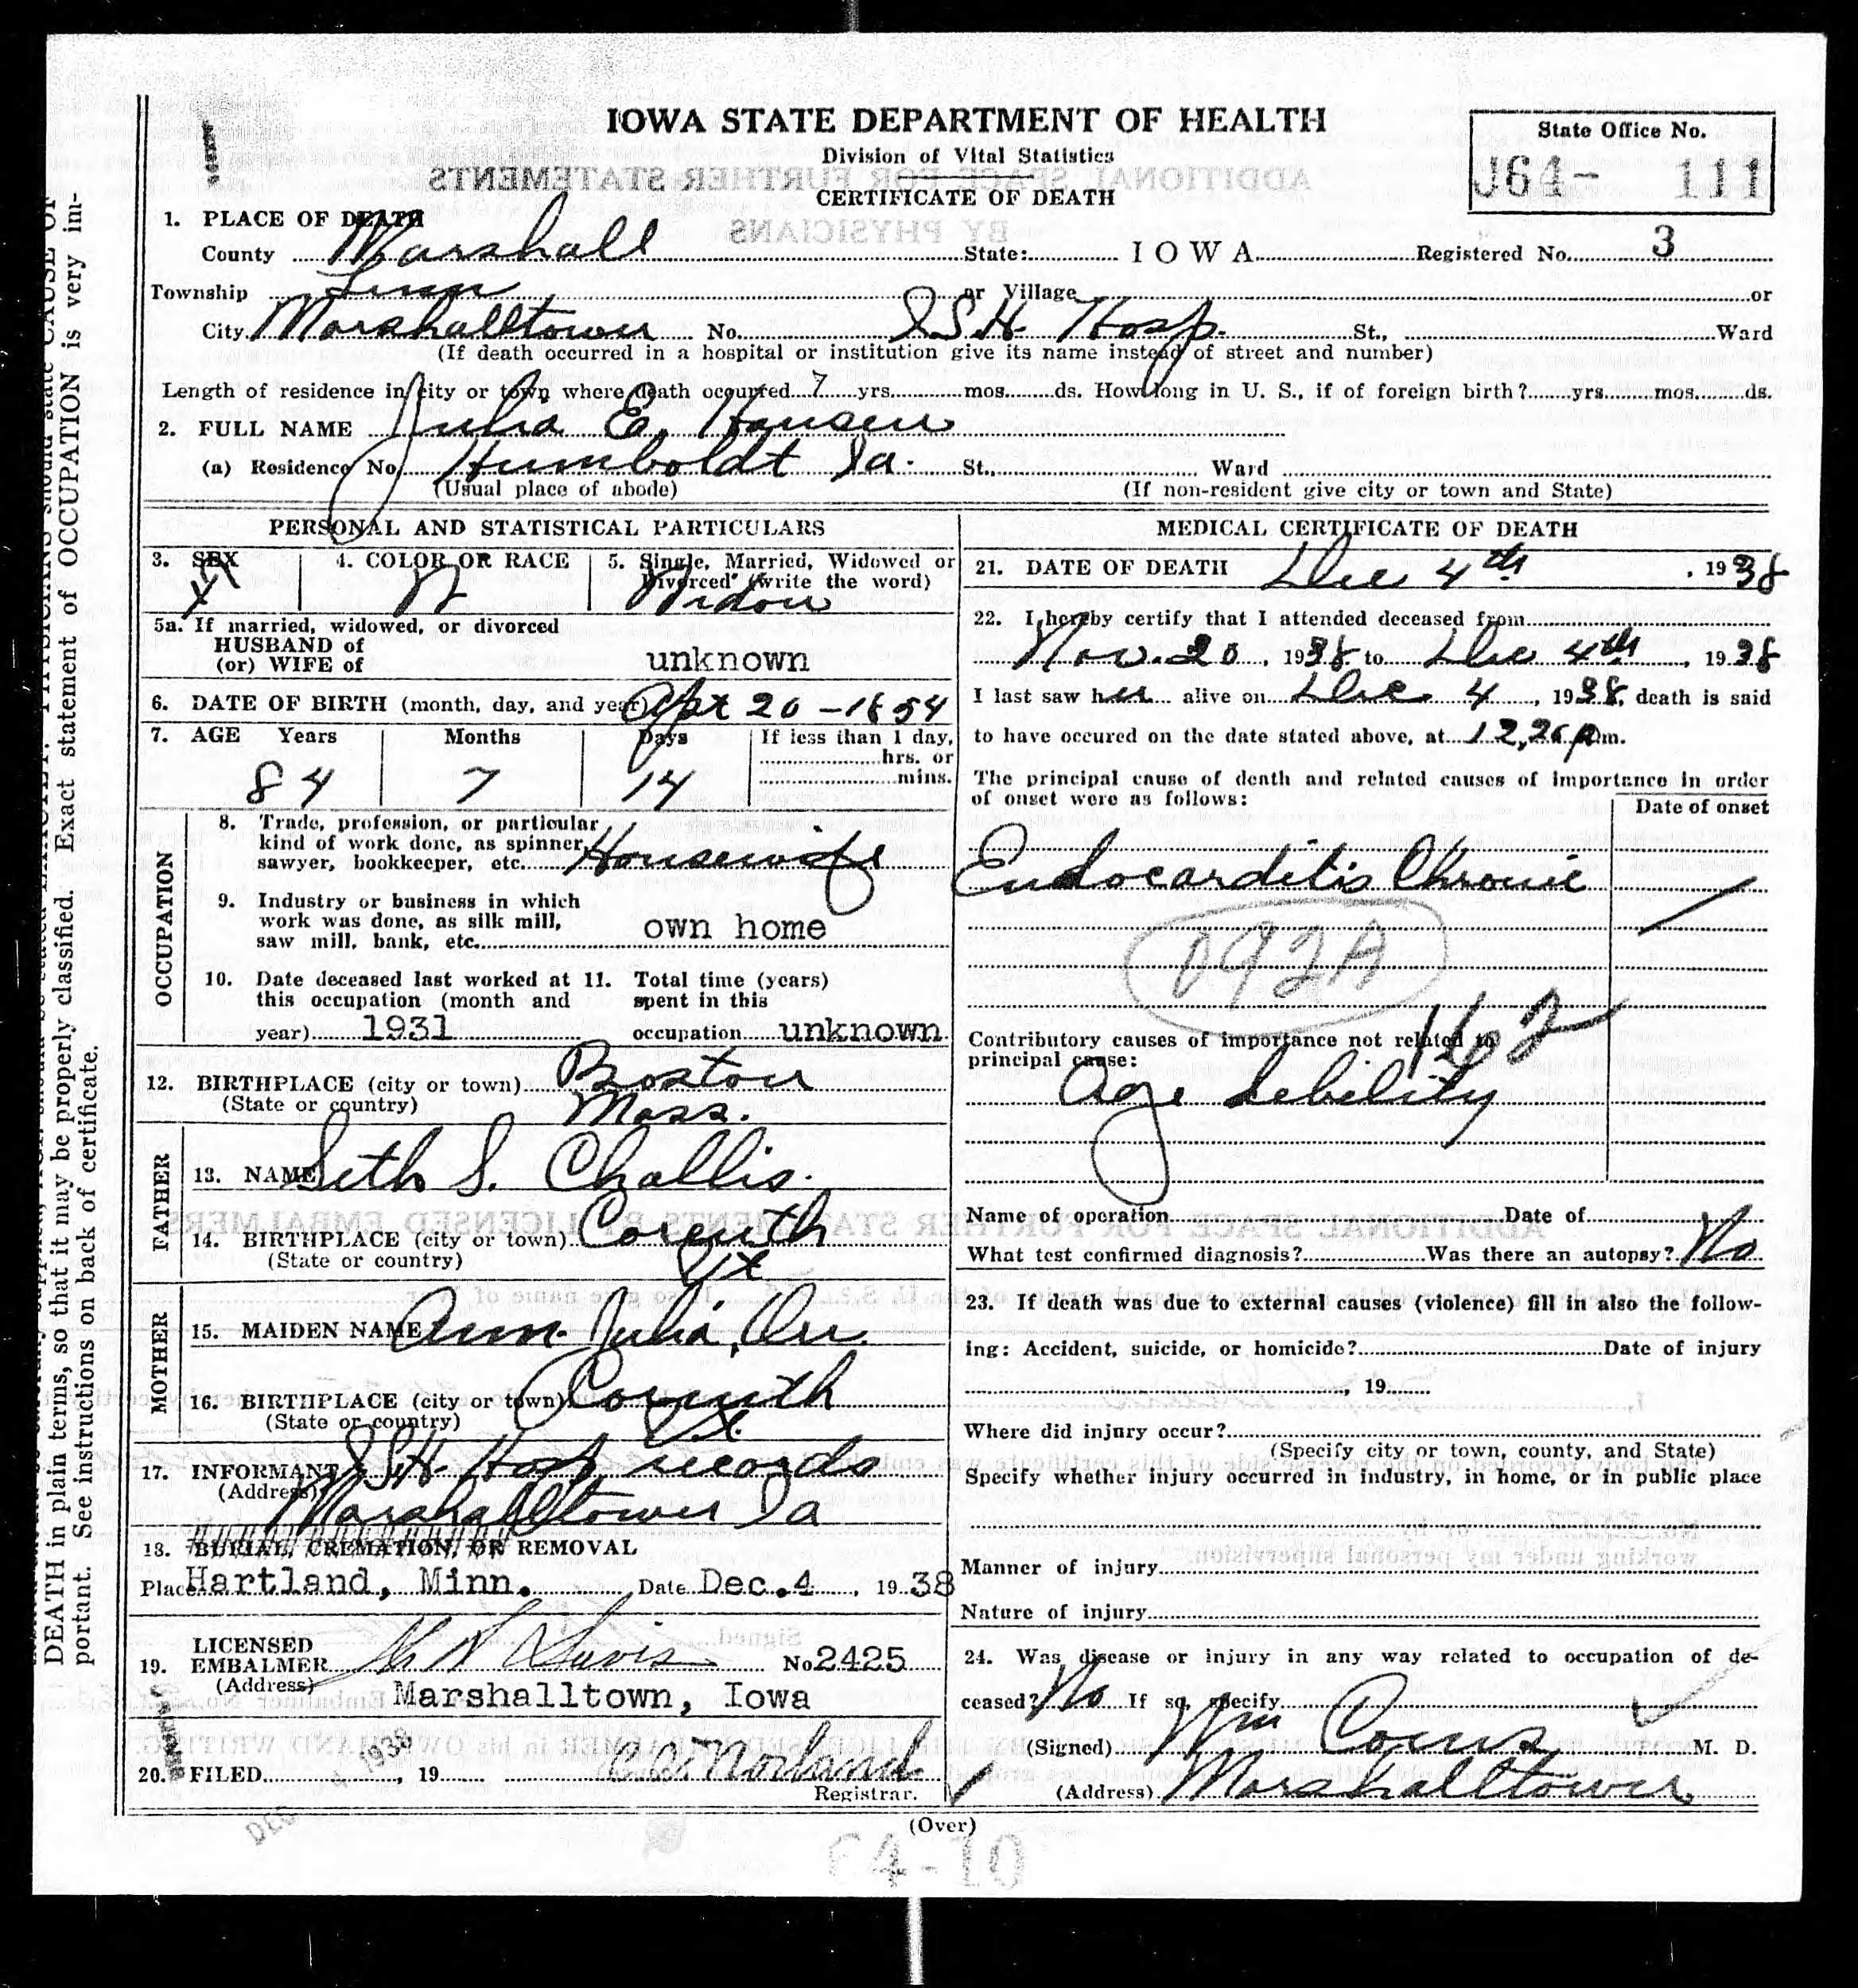 IOWA STATE DEPARTMENT OF HEALTH
Division of Vital Statistics
CERTIFICATE OF DEATH
State Office No.
J64- 111
1. PLACE OF DEATH
County Marshall State: IOWA Registered No. 3
Township or Village or
City Marshalltown No. ISH. Hosp. St., Ward
(If death occurred in a hospital or institution give its name instead of street and number)
Length of residence in city or town where death occurred 7 yrs. mos. ds. How long in U. S., if of foreign birth? yrs. mos. ds.
2. FULL NAME Julia E. Hansen
(a) Residence No. Humboldt Ia. St. Ward
(Usual place of abode) (If non-resident give city or town and State)
PERSONAL AND STATISTICAL PARTICULARS
3. SEX 4. COLOR OR RACE 5. Single, Married, Widowed or Divorced (write the word)
F W Widow
5a. If married, widowed, or divorced
HUSBAND of
(or) WIFE of unknown
6. DATE OF BIRTH (month, day, and year) Apr 20 - 1854
7. AGE Years Months Days If less than 1 day,
hrs. or
mins.
84 7 14
OCCUPATION
8. Trade, profession, or particular
kind of work done, as spinner,
sawyer, bookkeeper, etc. Housewife
9. Industry or business in which
work was done, as silk mill,
saw mill, bank, etc. own home
10. Date deceased last worked at this occupation (month and year) 1931
11. Total time (years) spent in this occupation unknown
12. BIRTHPLACE (city or town) Boston
(State or country) Mass.
FATHER
13. NAME Seth S. Challis.
14. BIRTHPLACE (city or town) Corinth
(State or country) Vt
MOTHER
15. MAIDEN NAME Ann Julia Orr
16. BIRTHPLACE (city or town) Corinth
(State or country) Vt.
17. INFORMANT ISH. Hosp records
(Address) Marshalltown Ia
18. BURIAL, CREMATION, OR REMOVAL
Place Hartland, Minn. Date Dec. 4, 1938
19. LICENSED
EMBALMER Davis No 2425
(Address) Marshalltown, Iowa
20. FILED DEC 4 1938, 19 Norland
Registrar.
MEDICAL CERTIFICATE OF DEATH
21. DATE OF DEATH Dec 4th, 1938
22. I hereby certify that I attended deceased from
Nov. 20, 1938 to Dec 4th, 1938
I last saw her alive on Dec 4, 1938, death is said
to have occured on the date stated above, at 12,26 p.m.
The principal cause of death and related causes of importance in order
of onset were as follows:
Date of onset
Endocarditis Chronic
092A
162
Contributory causes of importance not related to
principal cause:
Age debility
Name of operation Date of
What test confirmed diagnosis? Was there an autopsy? No
23. If death was due to external causes (violence) fill in also the follow-
ing: Accident, suicide, or homicide? Date of injury
, 19
Where did injury occur?
(Specify city or town, county, and State)
Specify whether injury occurred in industry, in home, or in public place
Manner of injury
Nature of injury
24. Was disease or injury in any way related to occupation of de-
ceased? No If so, specify
(Signed) Wm M. D.
(Address) Marshalltown
(Over)
64-10
DEATH in plain terms, so that it may be properly classified. Exact statement of OCCUPATION is very im-
portant. See instructions on back of certificate.
ADDITIONAL SPACE FOR FURTHER STATEMENTS
BY PHYSICIANS
ADDITIONAL SPACE FOR FURTHER STATEMENTS BY LICENSED EMBALMERS